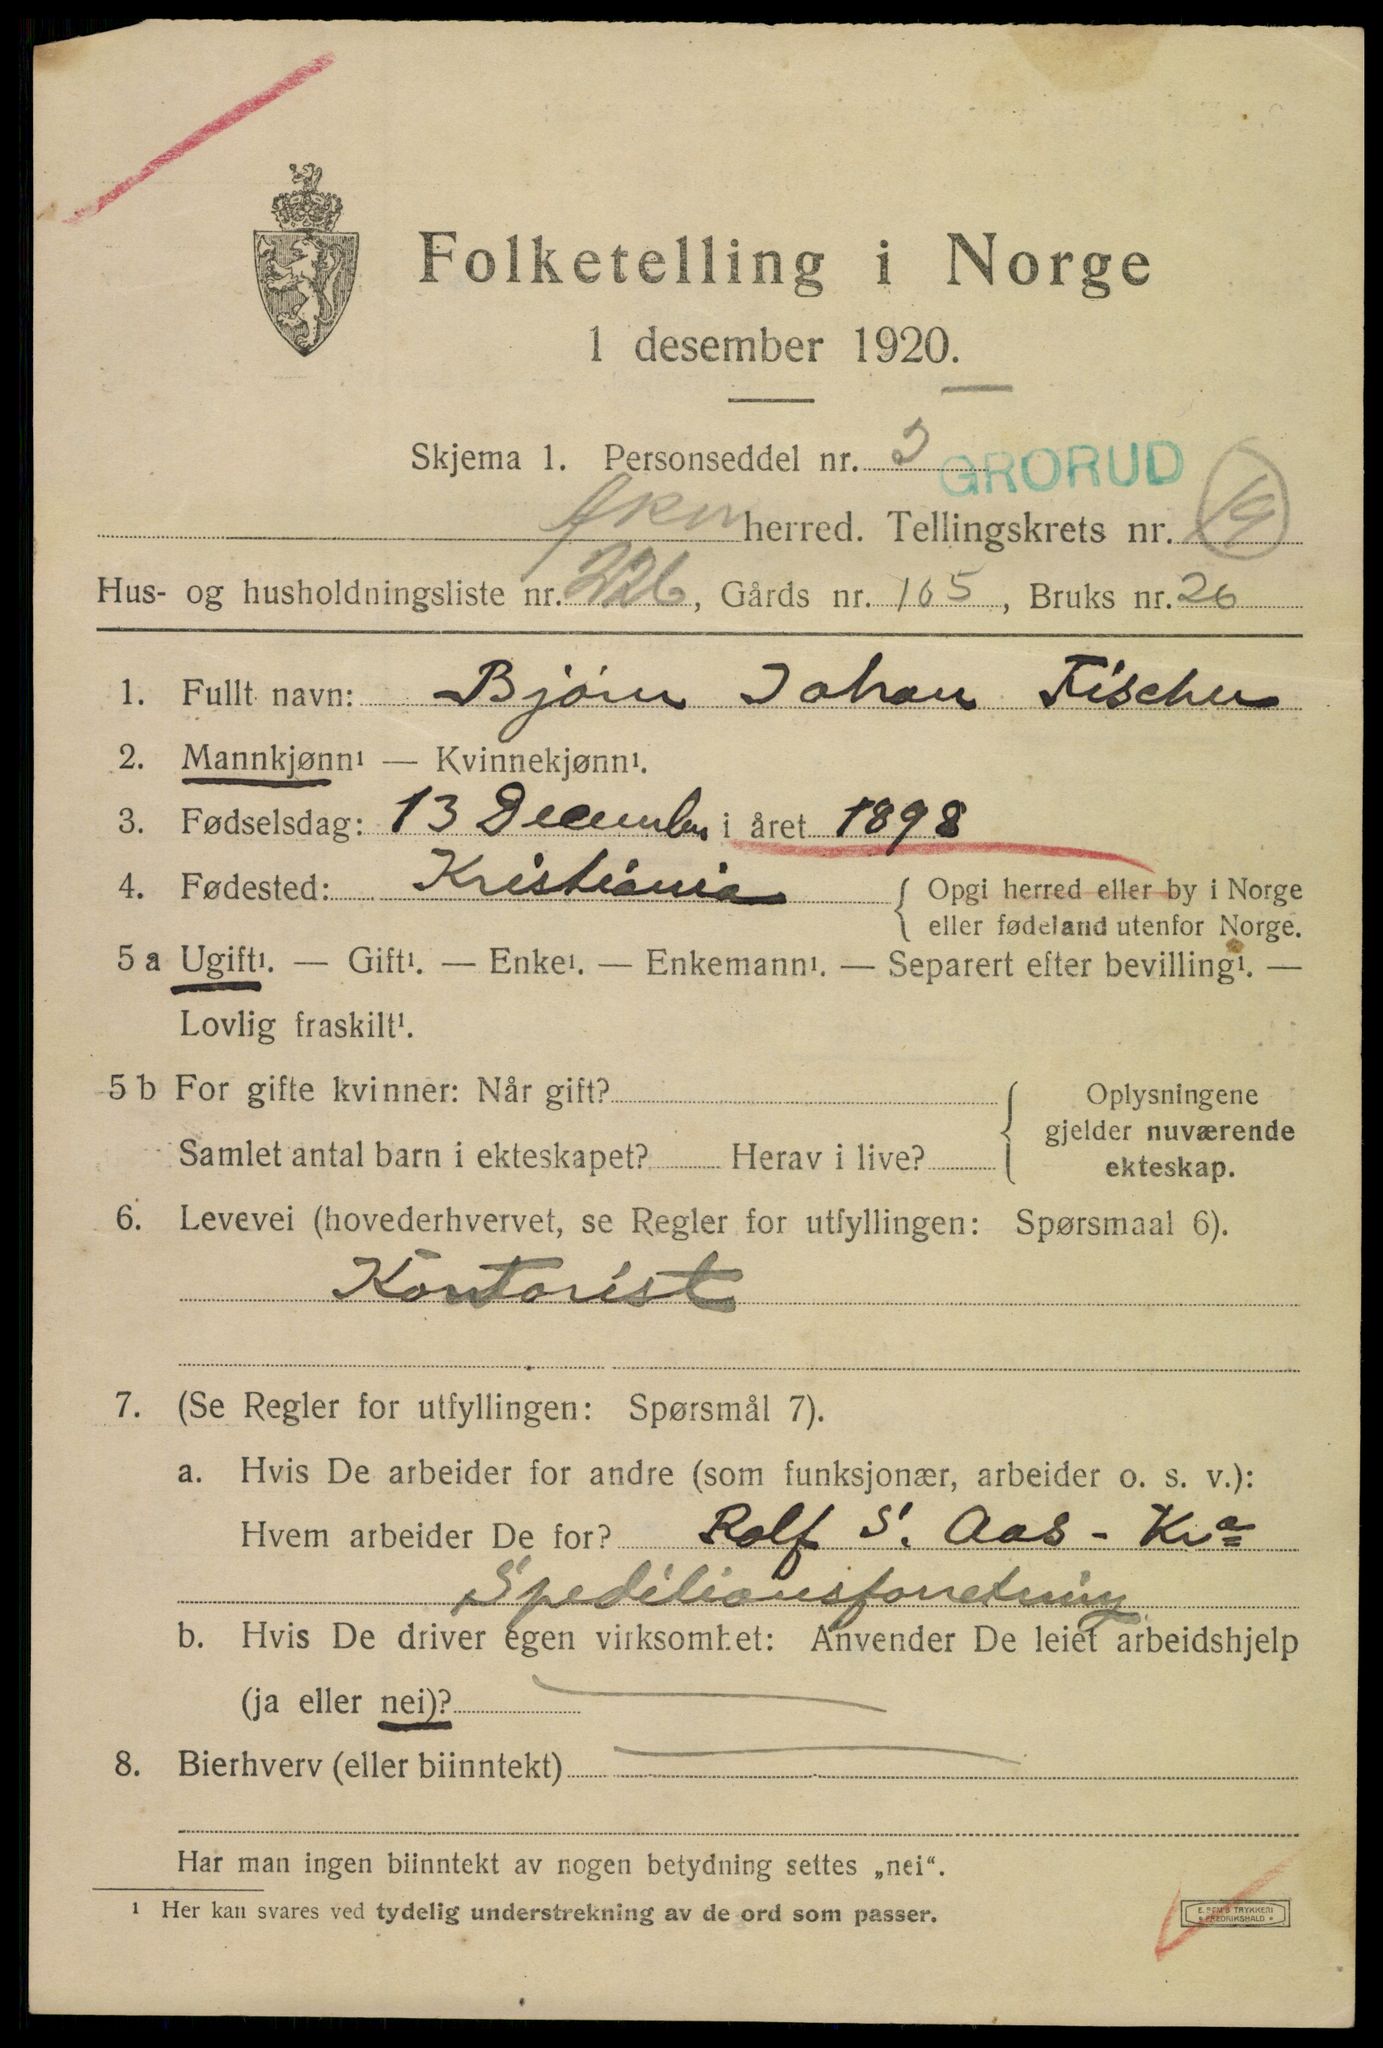 Folketelling i Norge
1 desember 1920.
Skjema 1. Personseddel nr. 3 GRORUD
Aker herred. Tellingskrets nr. 19
Hus- og husholdningsliste nr. 226, Gårds nr. 105, Bruks nr. 26
1. Fullt navn: Bjórn Johan Fischer
2. Mannkjønn¹ — Kvinnekjønn¹.
3. Fødselsdag: 13 December i året 1898
4. Fødested: Kristiania { Opgi herred eller by i Norge
eller fødeland utenfor Norge.
5 a Ugift¹. — Gift¹. — Enke¹. — Enkemann¹. — Separert efter bevilling¹. —
Lovlig fraskilt¹.
5 b For gifte kvinner: Når gift? { Oplysningene
gjelder nuværende
Samlet antal barn i ekteskapet? Herav i live? ekteskap.
6. Levevei (hovederhvervet, se Regler for utfyllingen: Spørsmaal 6).
Kontorist
7. (Se Regler for utfyllingen: Spørsmål 7).
a. Hvis De arbeider for andre (som funksjonær, arbeider o. s. v.):
Hvem arbeider De for? Rolf S. Aas - Kra
Speditionsforretning
b. Hvis De driver egen virksomhet: Anvender De leiet arbeidshjelp
(ja eller nei)?
8. Bierhverv (eller biinntekt)
Har man ingen biinntekt av nogen betydning settes „nei“.
¹ Her kan svares ved tydelig understrekning av de ord som passer.
E. SEM'S TRYKKERI
FREDRIKSHALD